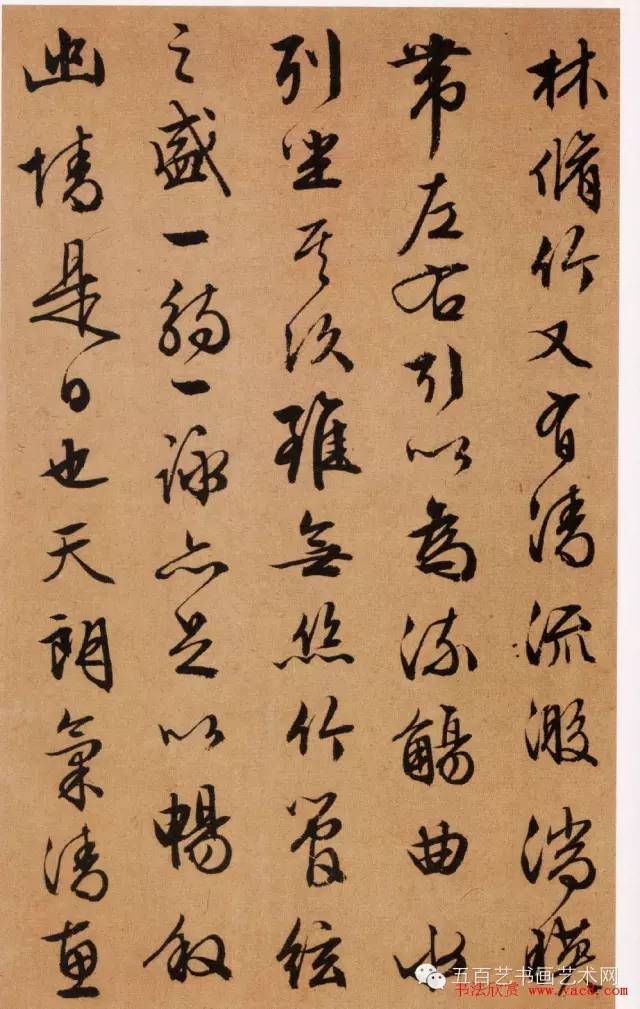 林脩竹又有清流激湍暎
帶左右引以為流觴曲水
列坐其次雖無絲竹管絃
之盛一觴一詠亦足以暢叙
幽情是日也天朗氣清惠
五百艺书画艺术网
书法欣赏 www.yac8.com